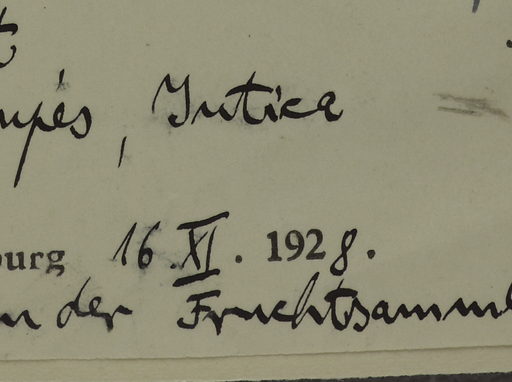 t
upés, Jutica
burg 16.XI. 1928.
n der Fruchtsamml